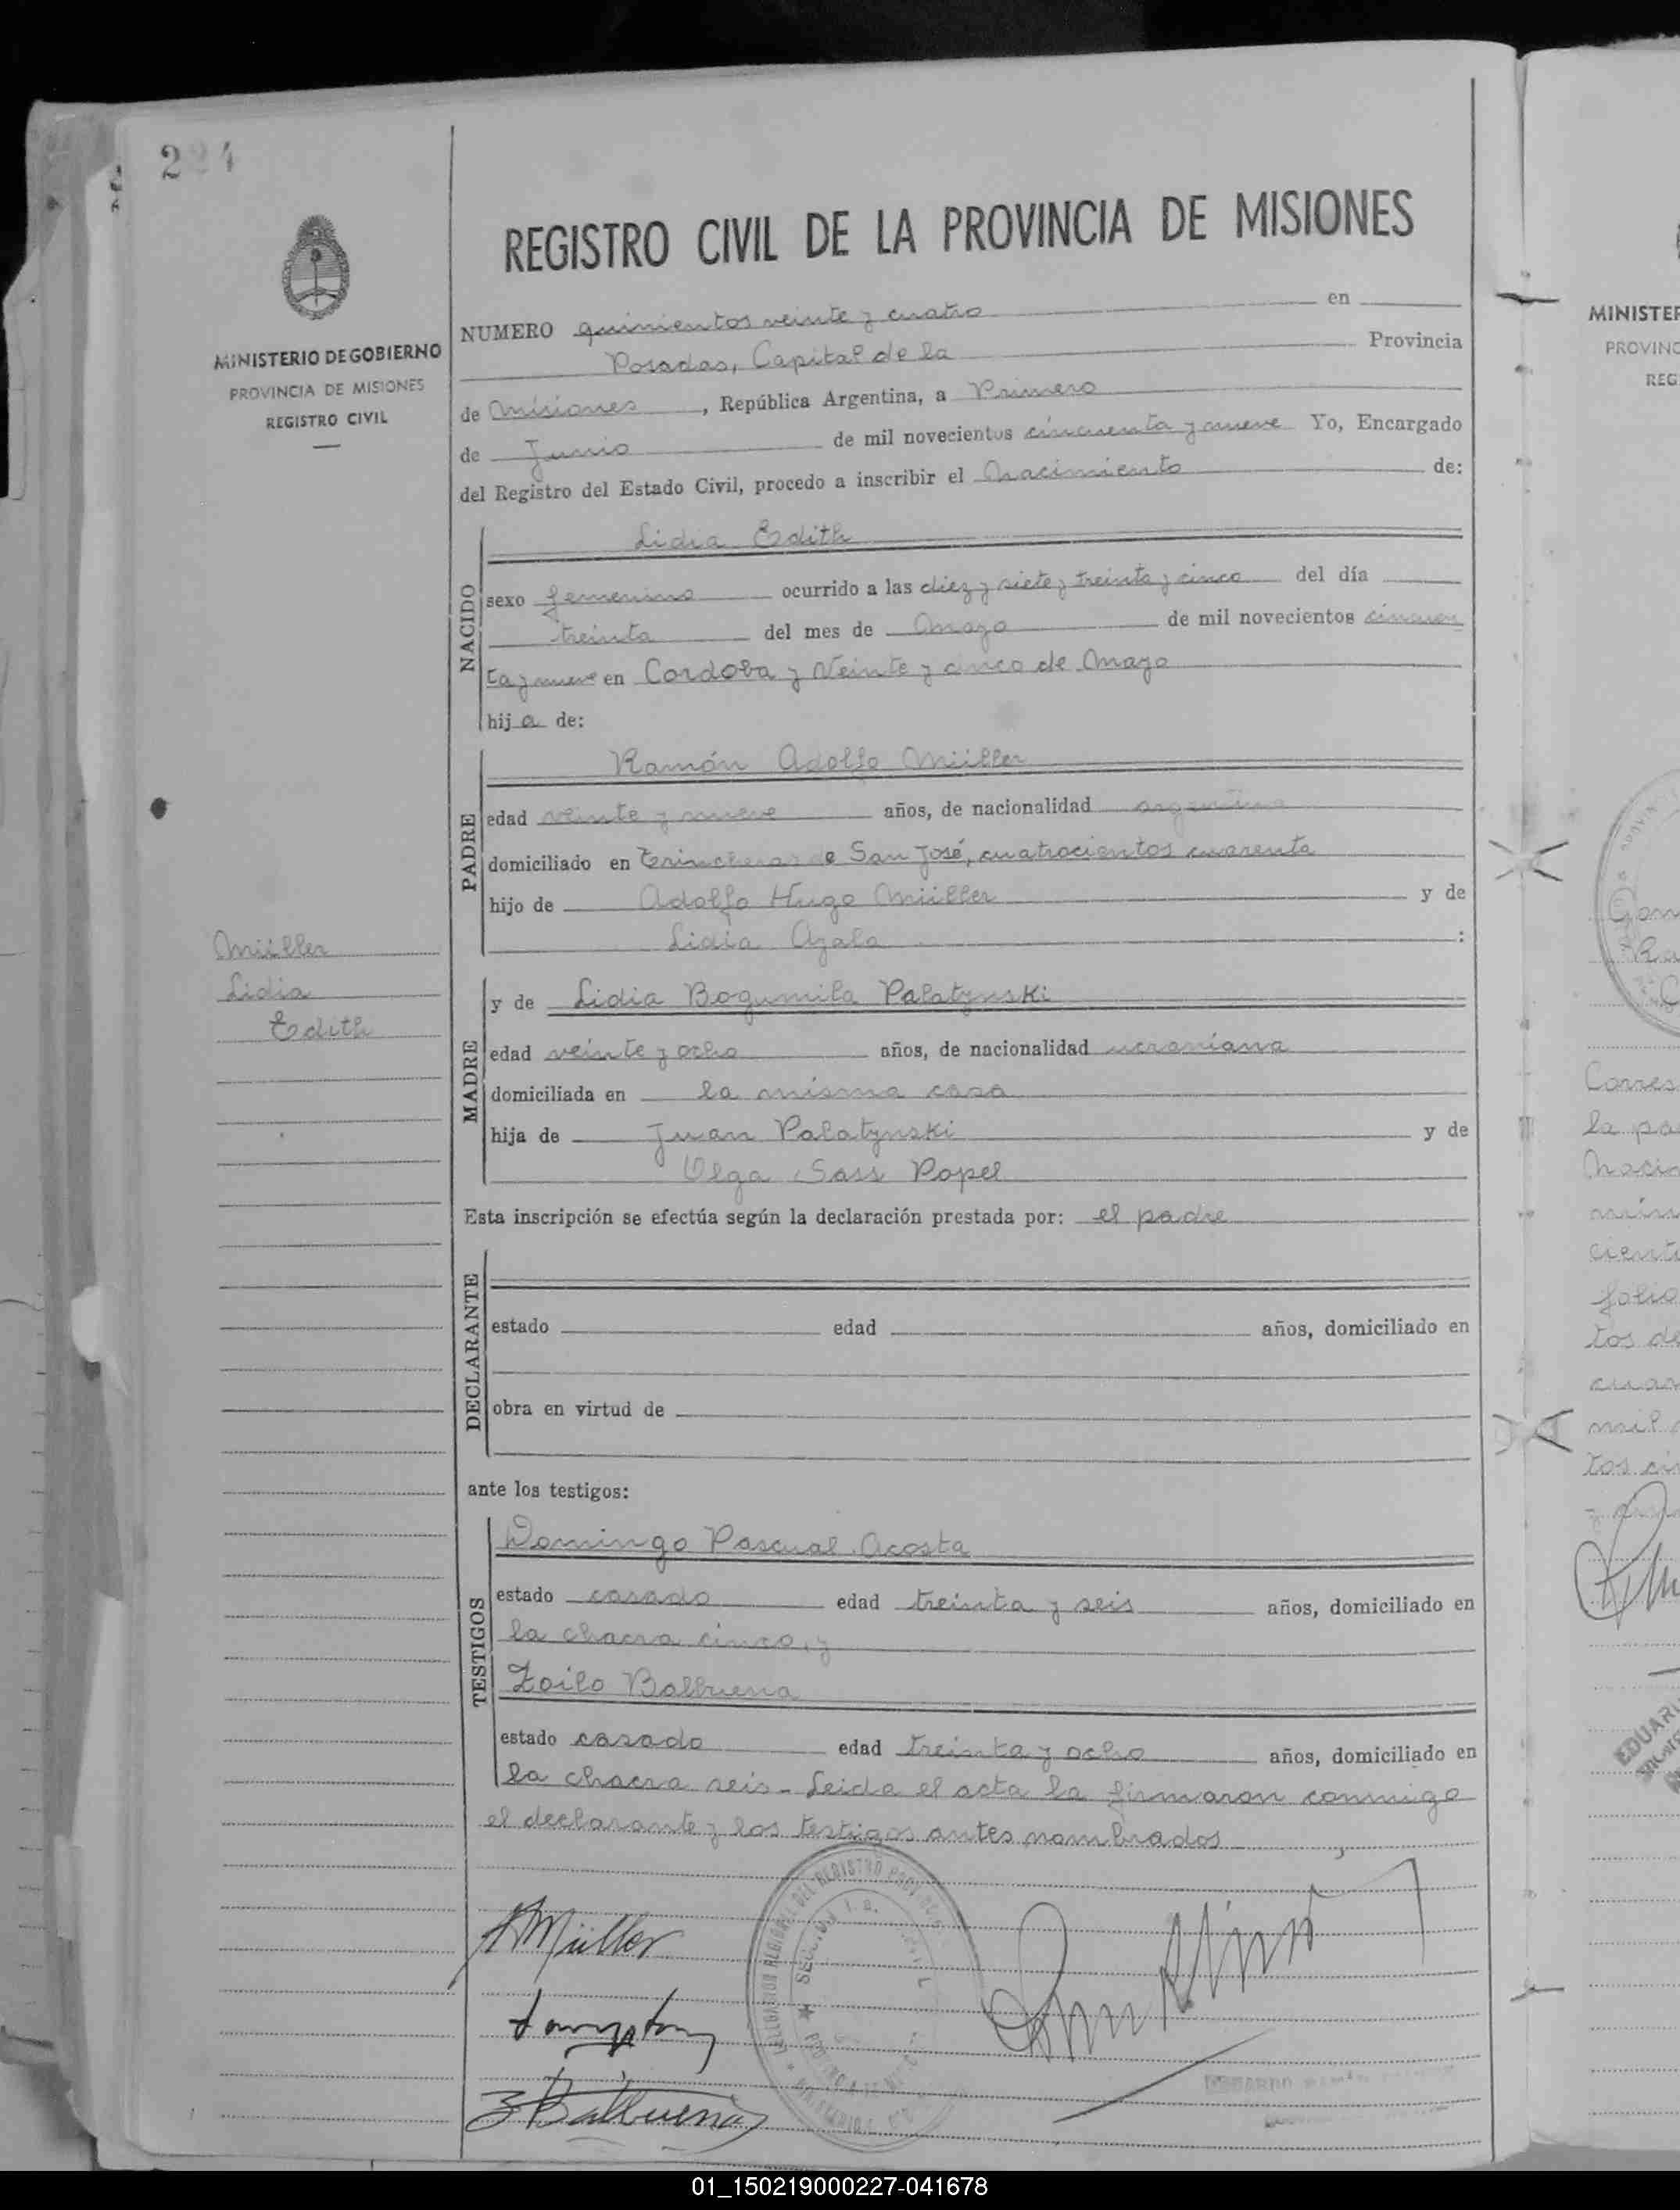 224
MINISTERIO DE GOBIERNO
PROVINCIA DE MISIONES
REGISTRO CIVIL
REGISTRO CIVIL DE LA PROVINCIA DE MISIONES
NUMERO quinientos veinte y cuatro en
Posadas, Capital de la Provincia
de Misiones, República Argentina, a Primero
de Junio de mil novecientos cincuenta y nueve Yo, Encargado
del Registro del Estado Civil, procedo a inscribir el Nacimiento de:
NACIDO
Lidia Edith
sexo femenino ocurrido a las diez y siete y treinta y cinco del día
treinta del mes de Mayo de mil novecientos cincuen
ta y nueve en Cordoba y Veinte y cinco de Mayo
hija de:
PADRE
Ramón Adolfo Müller
edad veinte y nueve años, de nacionalidad argentina
domiciliado en Trincheras de San José, cuatrocientos cuarenta
hijo de Adolfo Hugo Müller y de
Lidia Ayala :
Müller
Lidia
Edith
MADRE
y de Lidia Bogumila Palatynski
edad veinte y ocho años, de nacionalidad ucraniana
domiciliada en la misma casa
hija de Juan Palatynski y de
Olga Sass Popel
Esta inscripción se efectúa según la declaración prestada por: el padre
DECLARANTE
estado edad años, domiciliado en
obra en virtud de
ante los testigos:
TESTIGOS
Domingo Pascual Acosta
estado casado edad treinta y seis años, domiciliado en
la chacra cinco, y
Zoilo Balbuena
estado casado edad treinta y ocho años, domiciliado en
la chacra seis - Leida el acta la firmaron conmigo
el declarante y los testigos antes nombrados
AMüller
ZBalbuena
MINISTER
PROVINC
REG
Corres
la pa
Nacim
cient
folio
tos de
cuar
mil
tos ci
EDUAR
01_150219000227-041678